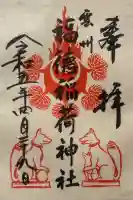 奉拝
雲州
福徳稲荷神社
令和五年四月二十九日